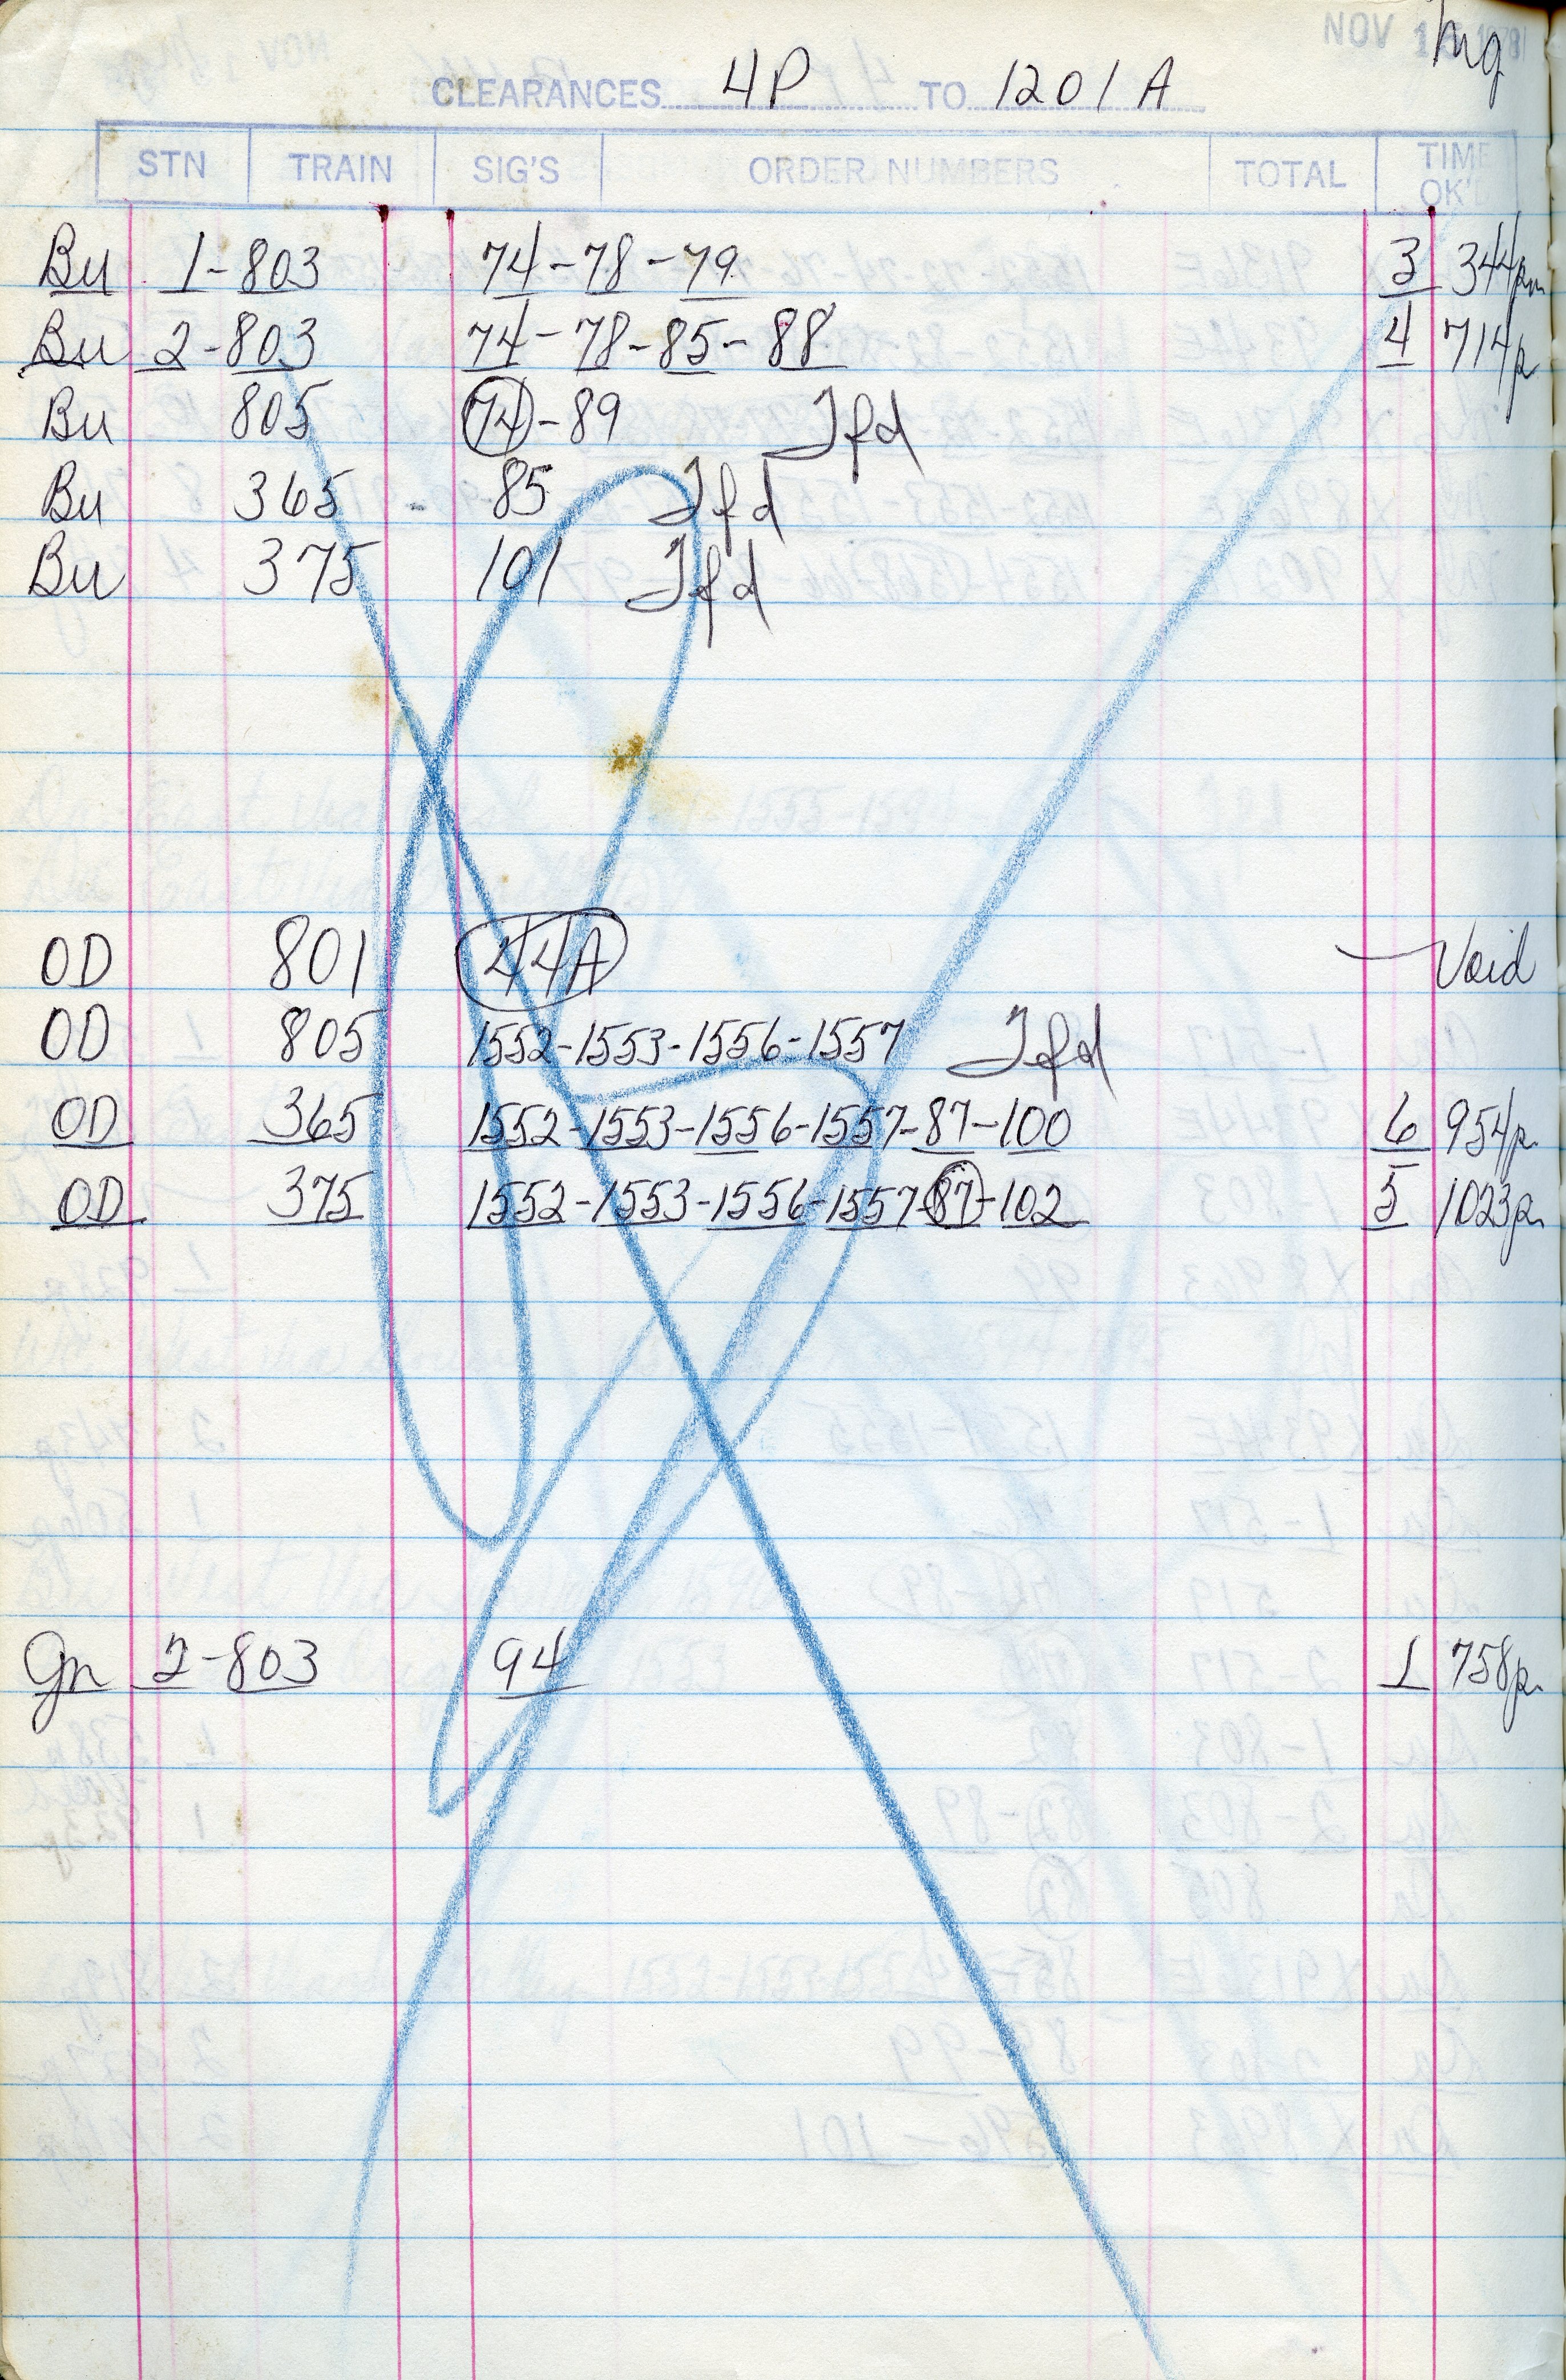 NOV
mg
CLEARANCES 4P TO 1201A
STN TRAIN SIG'S ORDER NUMBERS TOTAL TIME OK'D
Bu 1-803 74-78-79 3 344pm
Bu 2-803 74-78-85-88 4 714p
Bu 805 74-89 Tfd
Bu 365 - 85 Tfd
Bu 375 101 Tfd
OD 801 44A Void
OD 805 1552-1553-1556-1557 Tfd
OD 365 1552-1553-1556-1557-87-100 6 954p
OD 375 1552-1553-1556-1557-87-102 5 1023p
Gn 2-803 94 1 758p